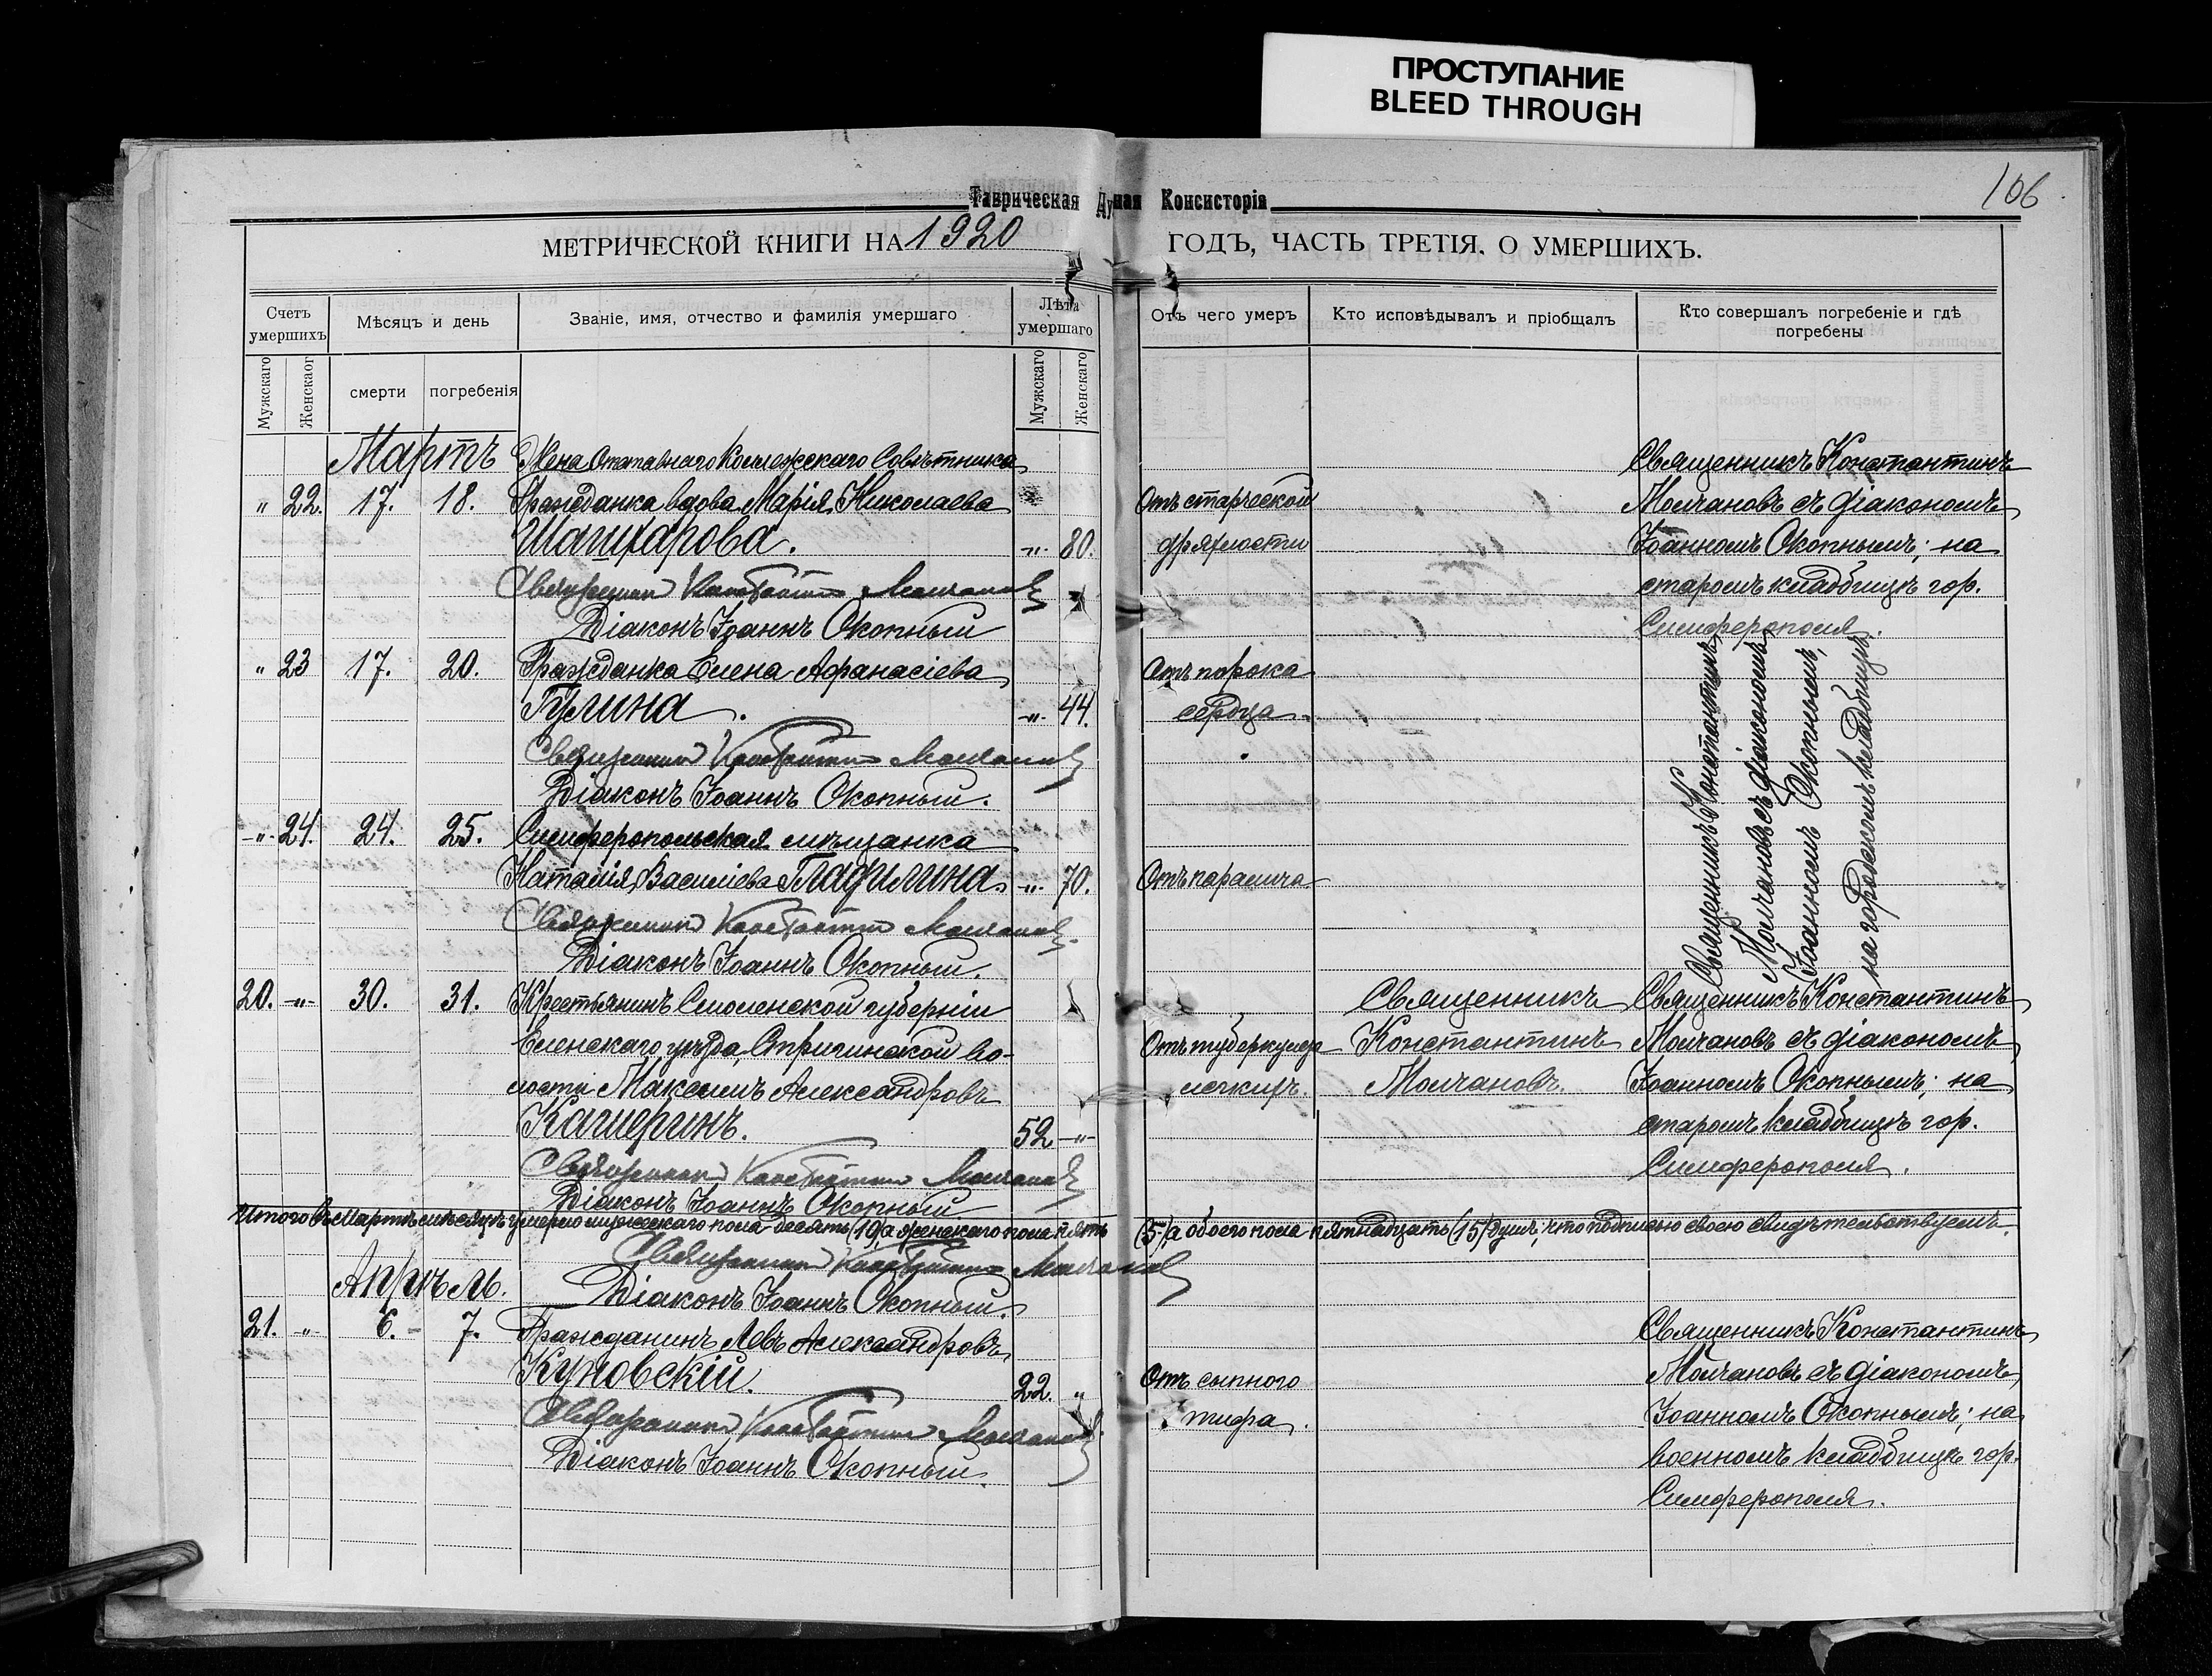 ПРОСТУПАНИЕ
BLEED THROUGH
106
Таврическая Духовная Консисторія
МЕТРИЧЕСКОЙ КНИГИ НА 1920 ГОДЪ, ЧАСТЬ ТРЕТІЯ, О УМЕРШИХЪ.
Счетъ умершихъ
Мѣсяцъ и день
Званіе, имя, отчество и фамилія умершаго
Лѣта умершаго
Отъ чего умеръ
Кто исповѣдывалъ и пріобщалъ
Кто совершалъ погребеніе и гдѣ погребены
Мужскаго
Женскаог
смерти
погребенія
Мужскаго
Женскаго
Мартъ Жена Отставнаго Коллежскаго Совѣтника Священникъ Константинъ
" 22. 17. 18. Гражданка вдова Марія Николаева Отъ старческой Молчановъ съ діакономъ
Шашкарова. -"- 80. дряхлости Іоанномъ Окопнымъ; на
Священникъ Константинъ Молчановъ старомъ кладбищѣ гор.
Діаконъ Іоаннъ Окопный Симферополя.
" 23 17. 20. Гражданка Елена Афанасіева Отъ порока
Гулина. -"- 44. сердца.
Священникъ Константинъ Молчановъ
Діаконъ Іоаннъ Окопный.
-"- 24. 24. 25. Симферопольская мѣщанка
Наталія Василіева Гладилина. -"- 70. Отъ паралича
Священникъ Константинъ Молчановъ
Діаконъ Іоаннъ Окопный.
Священникъ Константинъ
Молчановъ съ діакономъ
Іоанномъ Окопнымъ,
на городскомъ кладбищѣ
20. -"- 30. 31. Крестьянинъ Смоленской губерніи Священникъ Священникъ Константинъ
Еленскаго уѣзда, Стригинской во- Отъ туберкулеза Константинъ Молчановъ съ діакономъ
лости Максимъ Александровъ легкихъ. Молчановъ. Іоанномъ Окопнымъ; на
Кашергинъ. 52 -"- старомъ кладбищѣ гор.
Священникъ Константинъ Молчановъ Симферополя.
Діаконъ Іоаннъ Окопный
Итого въ Мартѣ мѣсяцѣ умерло мужескаго пола-десять (10), а женскаго пола пять (5), а обоего пола пятнадцать (15) душъ, что подписью своею свидѣтельствуемъ.
Священникъ Константинъ Молчановъ
Апрѣль. Діаконъ Іоаннъ Окопный.
21. -"- 6. - 7. Гражданинъ Левъ Александровъ Священникъ Константинъ
Куновскій. 22. " Отъ сыпного Молчановъ съ діакономъ
Священникъ Константинъ Молчановъ тифа. Іоанномъ Окопнымъ; на
Діаконъ Іоаннъ Окопный. военномъ кладбищѣ гор.
Симферополя.